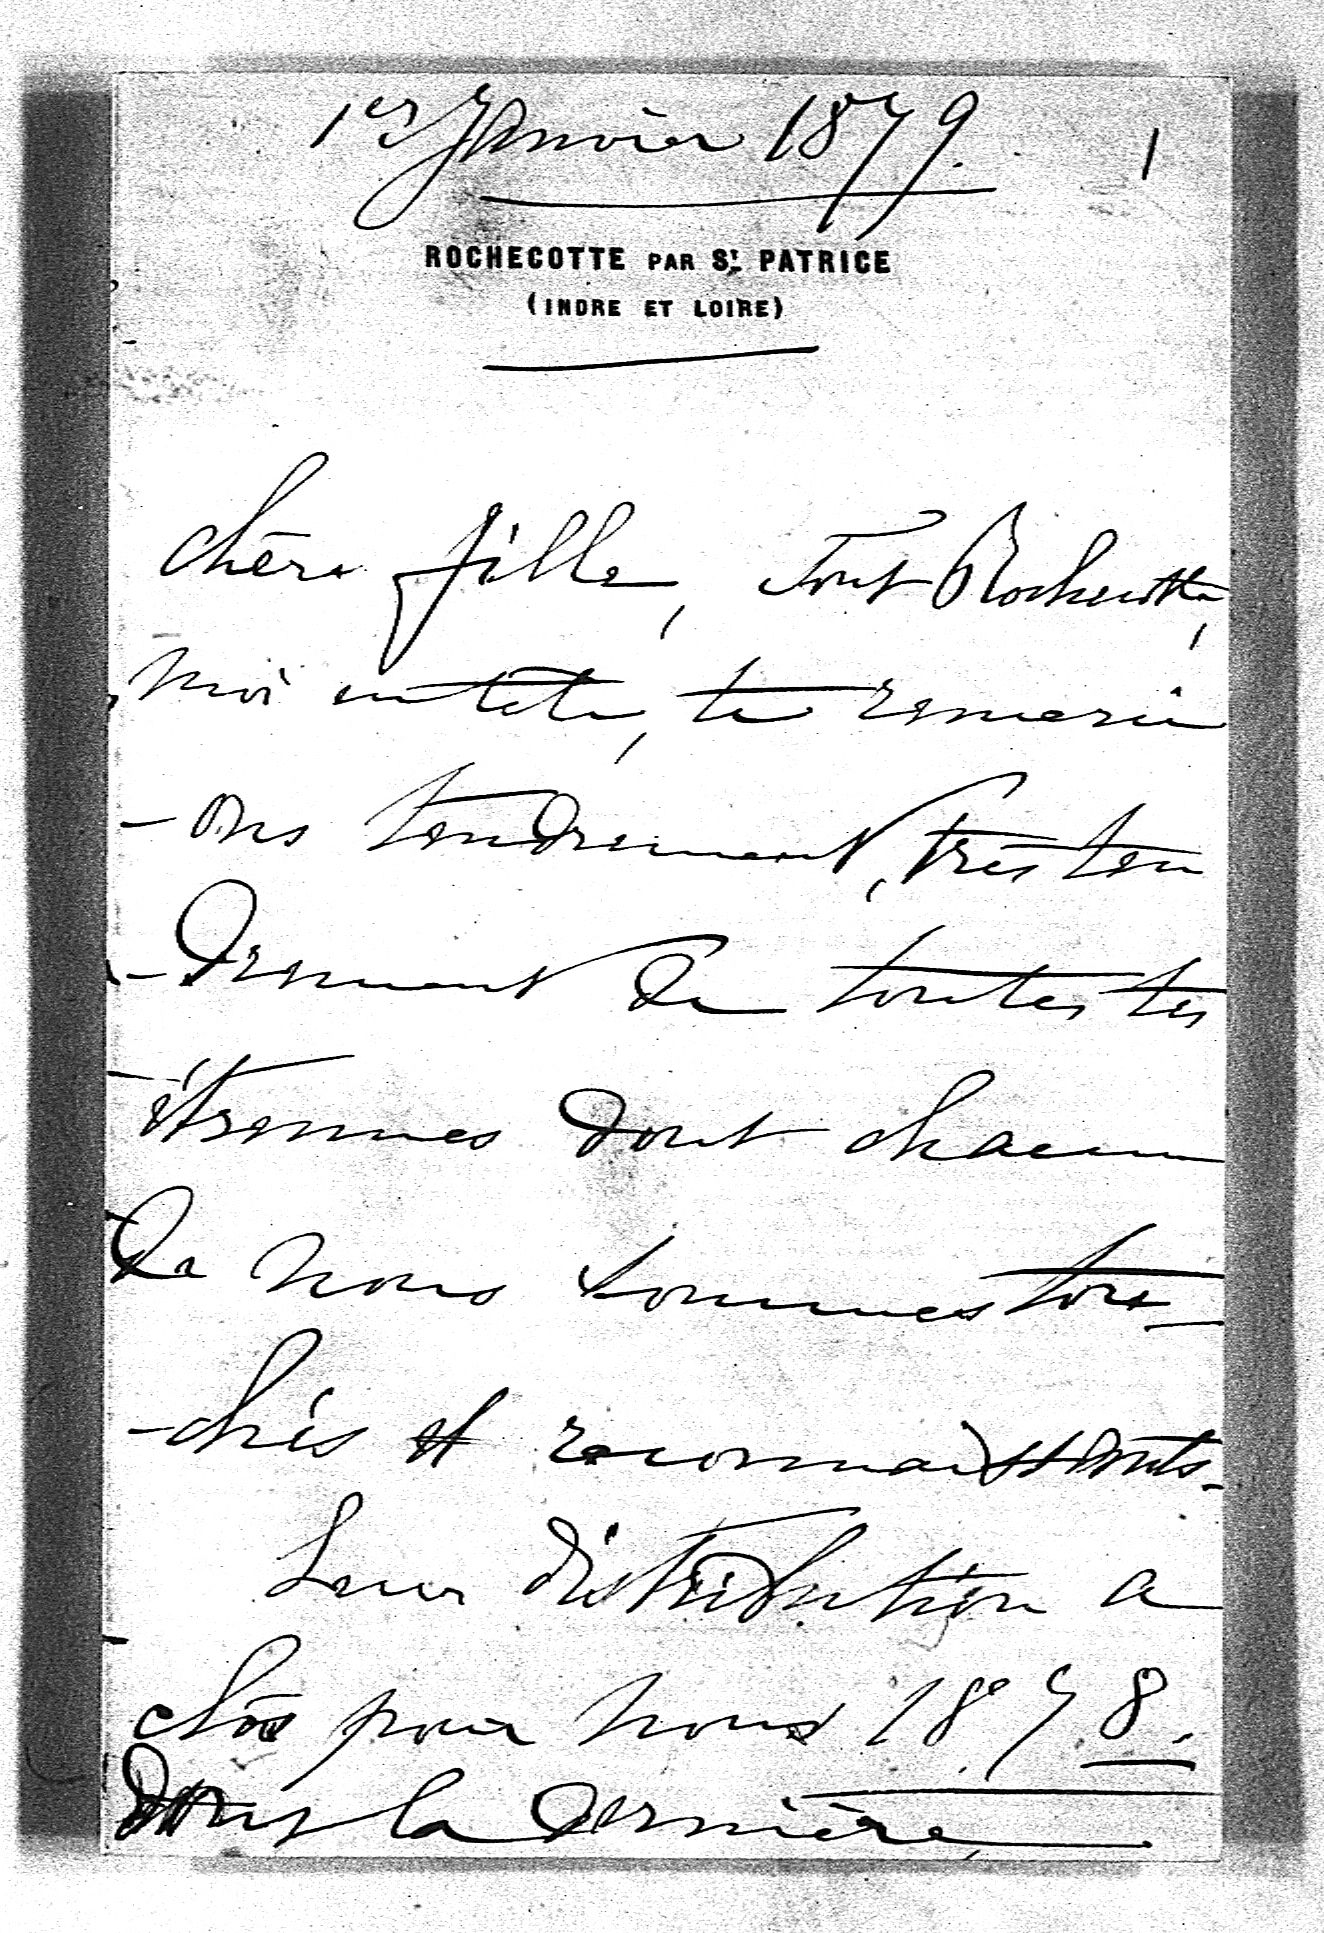 1er Janvier 1879. 1
ROCHECOTTE PAR ST. PATRICE
(INDRE ET LOIRE)
chère fille, Tout Rochecotte,
moi en tête, te remerci
-ons tendrement, très ten
-drement de toutes tes
étrennes dont chacun
de nous sommes tou-
-chés et reconnaissants.
Leur distribution a
clos pour nous 1878.
Dans la dernière